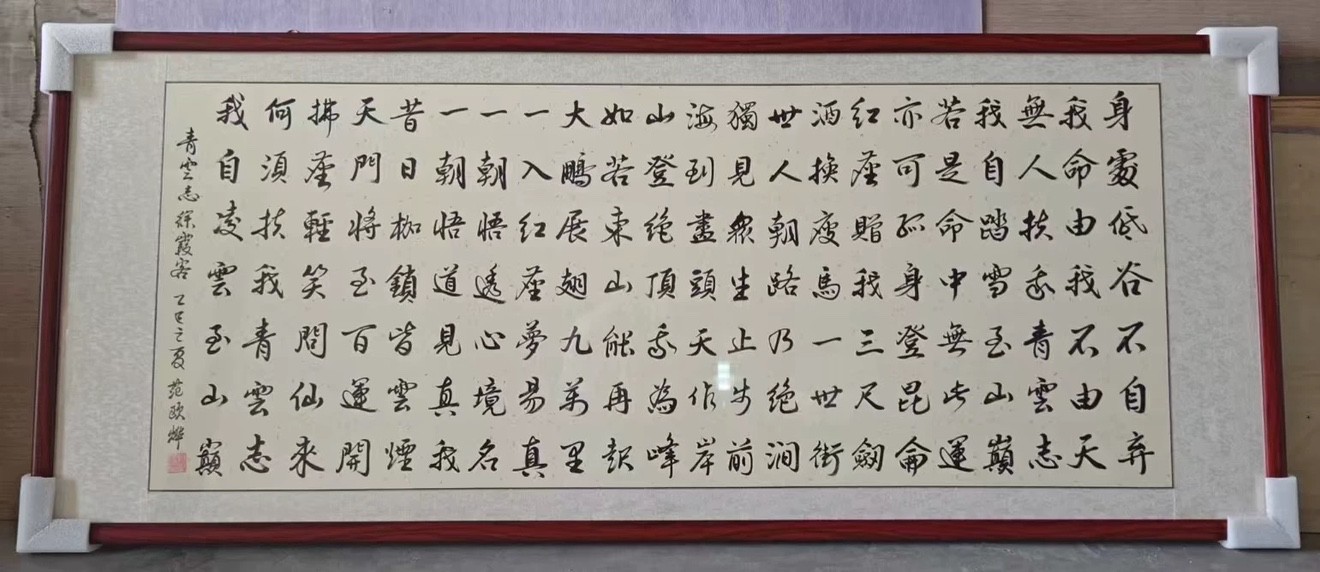 身處低谷不自弃
我命由我不由天
無人扶我青雲志
我自踏雪至山巔
若是命中無此運
亦可孤身登昆侖
紅塵贈我三尺劍
酒換瘦馬一世街
世人朝路乃絶澗
獨見衆生止步前
海到盡頭天作岸
山登绝頂我為峰
如若東山能再起
大鵬展翅九萬里
一入紅塵夢易真
一朝悟透心境名
一朝悟道見真我
昔日枷鎖皆雲煙
天門將至百運開
拂塵輕笑問仙來
何須扶我青雲志
我自凌雲至山巔
青雲志徐霞客 乙巳之夏 苑欧燁